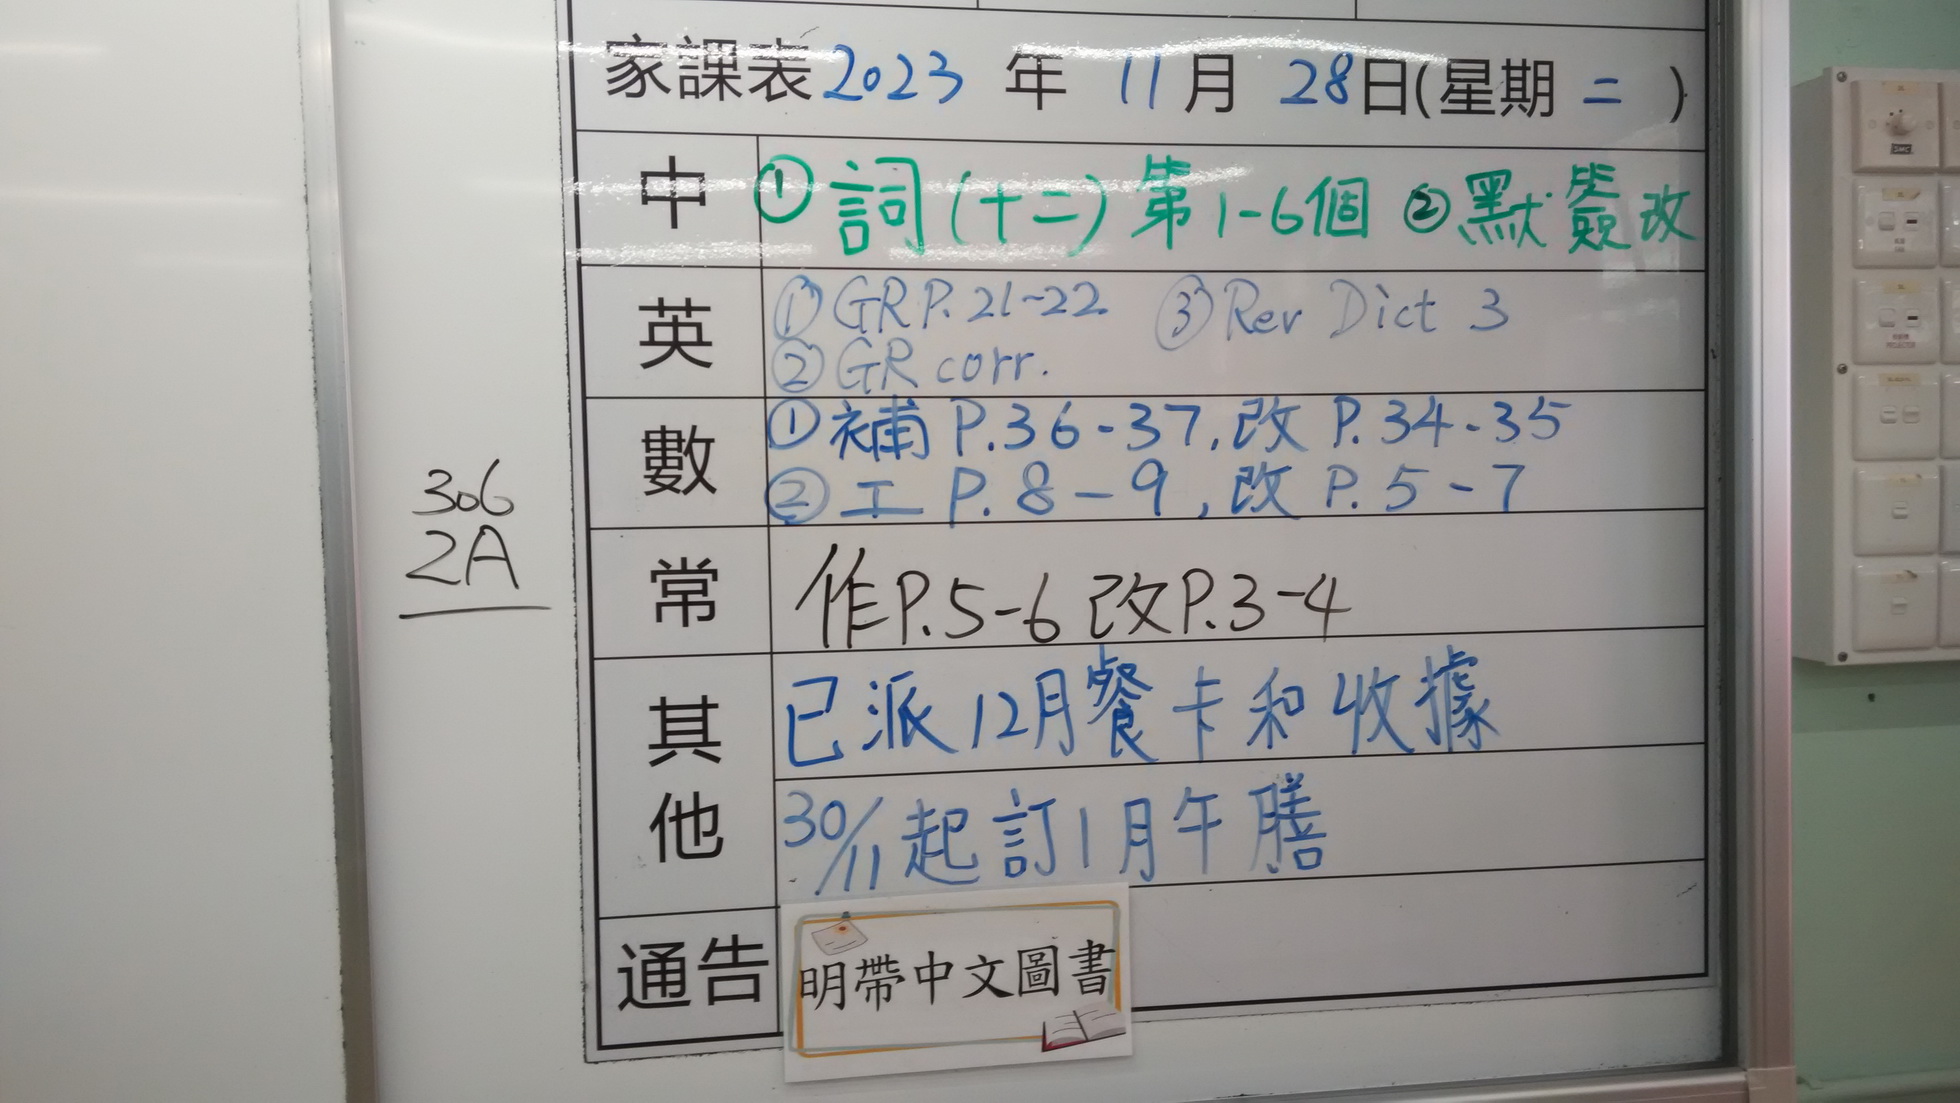 家課表 2023 年 11 月 28 日(星期 二 )
中 ① 詞(十二)第1-6個 ② 默簽改
英 ① GR P.21-22 ③ Rev Dict 3
② GR corr.
數 ① 補 P.36-37, 改 P.34-35
② 工 P.8-9, 改 P.5-7
306
2A
常 作P.5-6 改P.3-4
其他 已派12月餐卡和收據
30/11起訂1月午膳
通告 明帶中文圖書